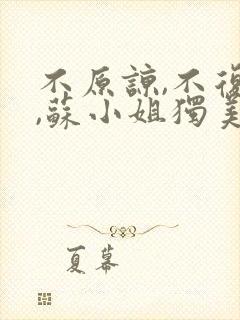 不原諒,不復
,蘇小姐獨美
夏幕